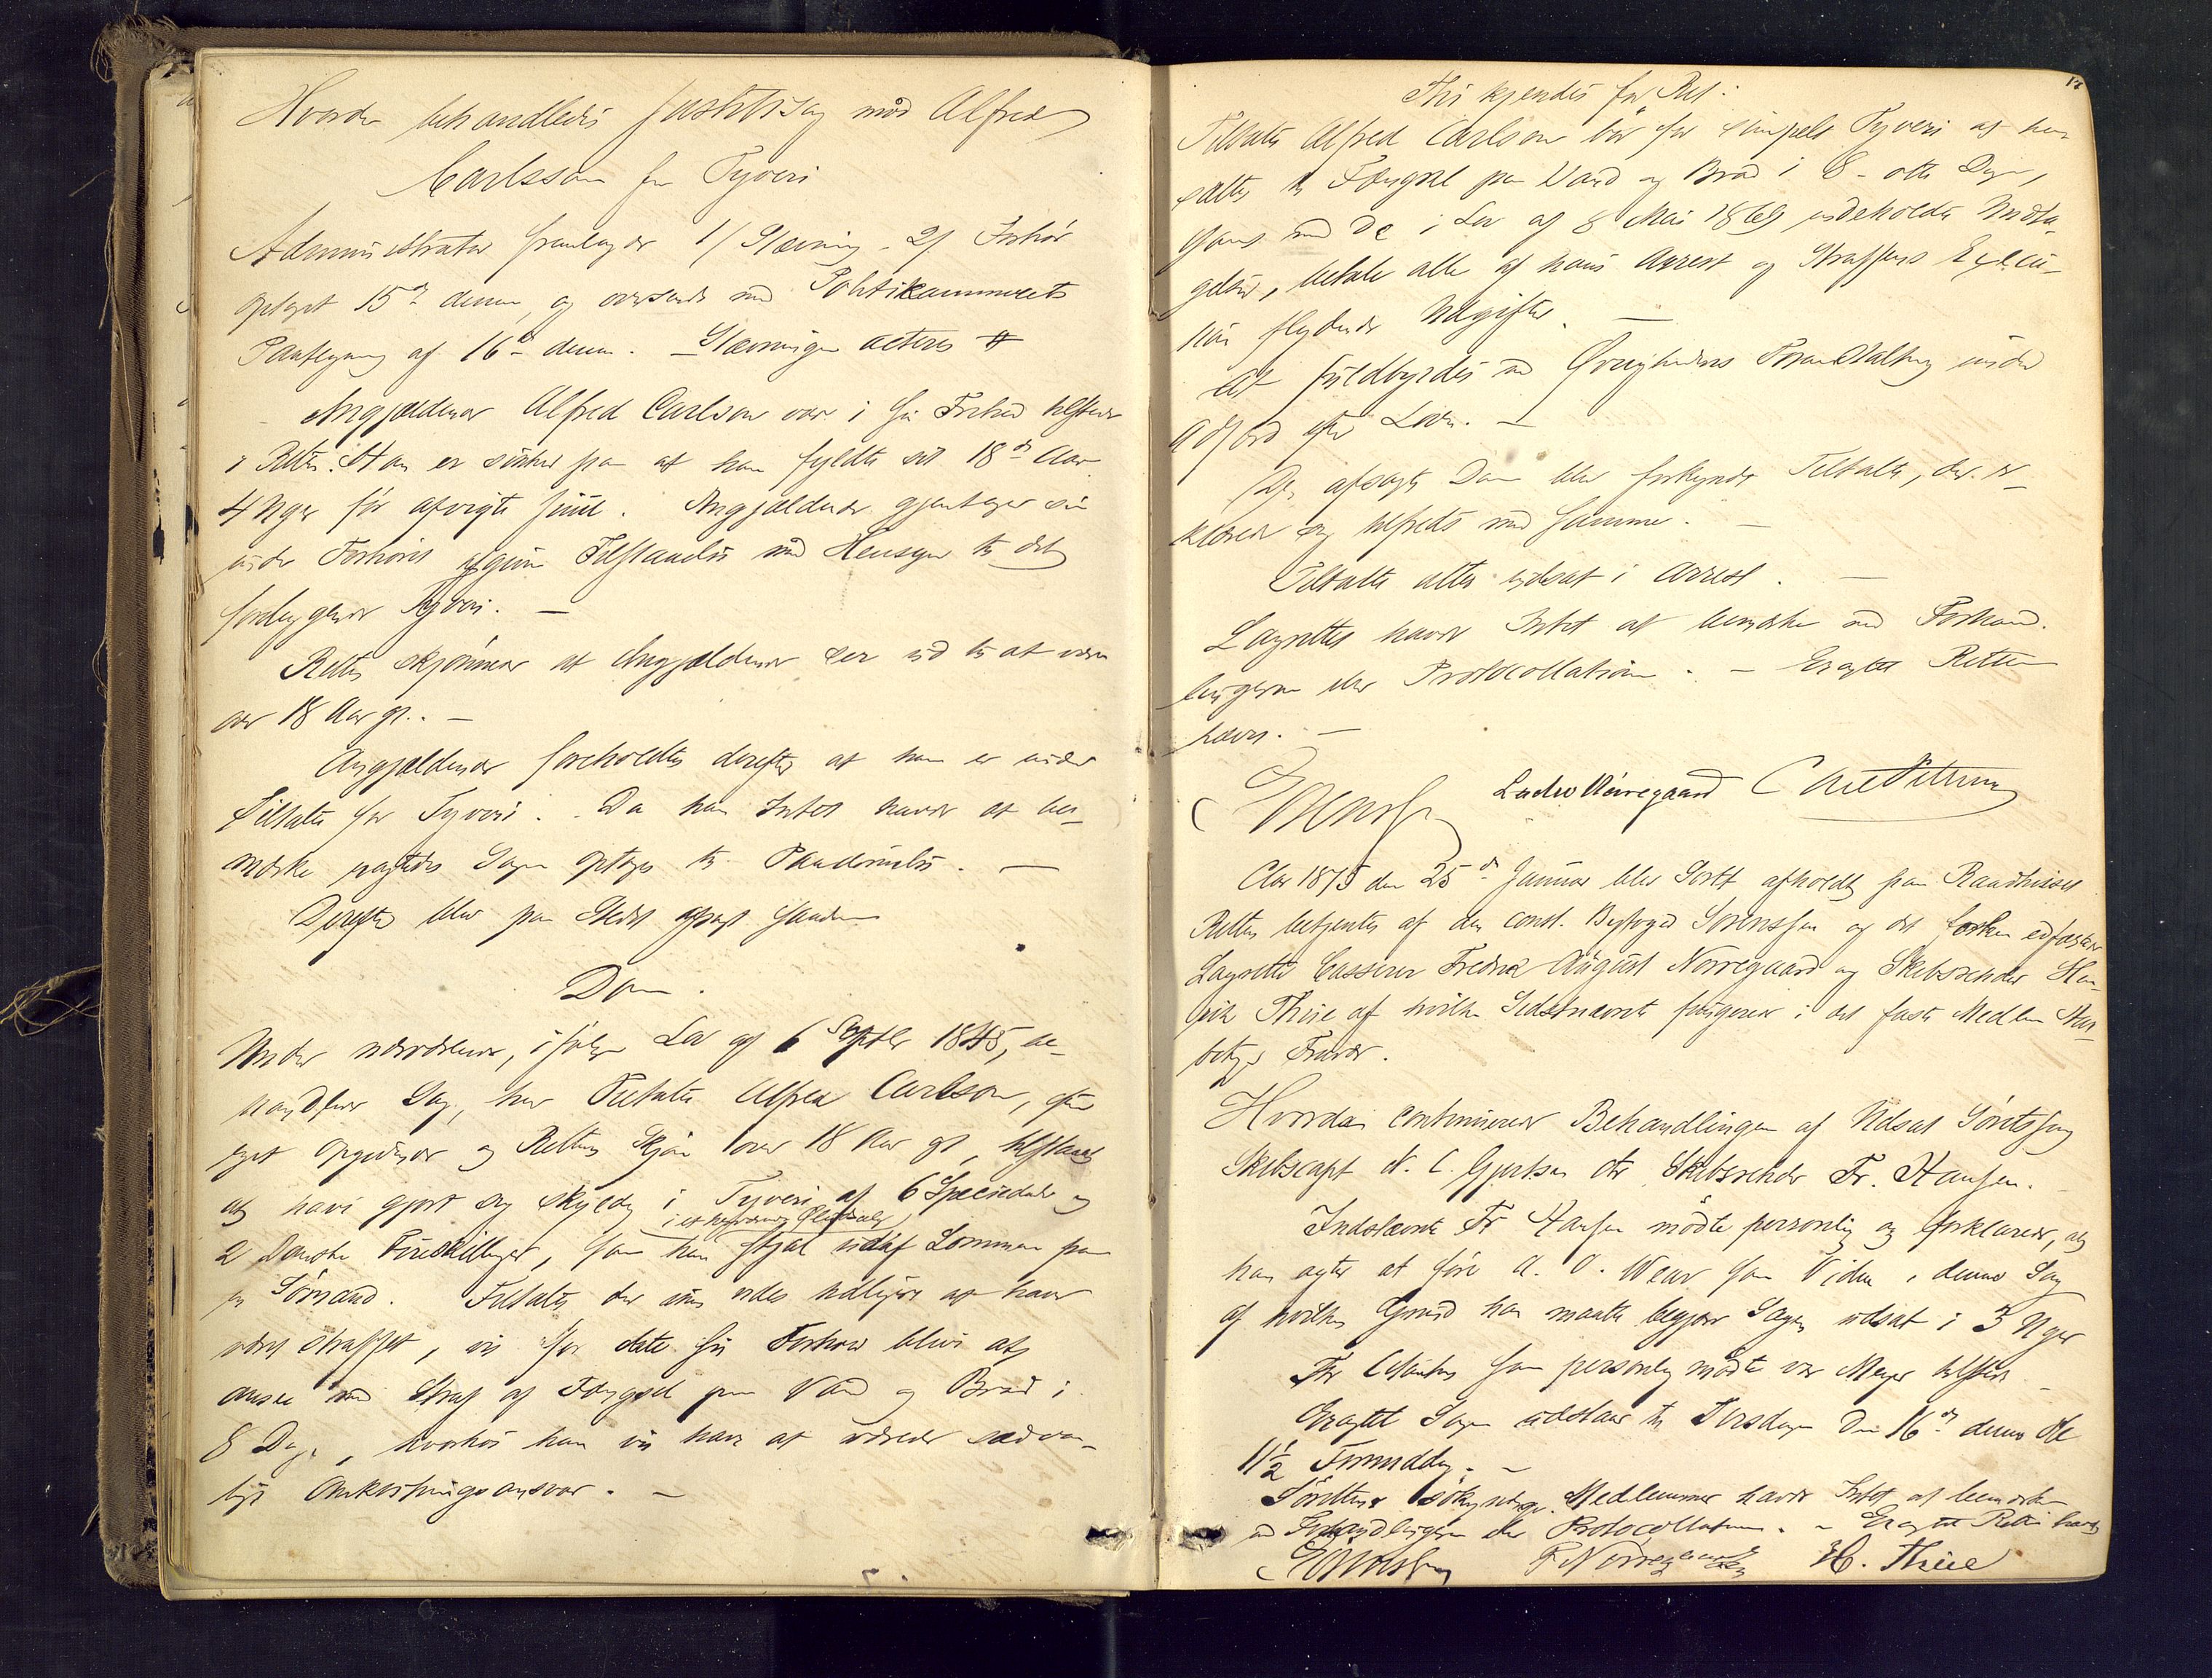 Hvorda behandledes Justitssag mod Alfred
Carlsson for Tyveri
Administrator fremlagde 1/ Stævning 2/ Forhør
optaget 15de dennes, og oversendt med Politikammerets
Paategning af 16de dennes. – Stævningen acteres
Angjældende Alfred Carlson var i fri Forhold tilstede
i Retten. Han er sikker paa at han fyldte sit 18de Aar
4 Uger før afvigte Juul. Angjældende gjentager sin
under Forhøret afgivne Tilstaaelse med Hensyn til det
foreliggende Tyveri. –
Retten skjønner at Angjældende ser ud til at være
over 18 Aar gl. –
Angjældende foreholdtes derefter at han er under
Tiltale for Tyveri. Da han Intet havde at be-
mærke eragtedes Sagen optages til Paadømmelse. –
Derefter blev paa Stedet afsagt saadan
Dom.
Under nærværende, ifølge Lov af 6 Septbr 1845, be-
handlede Sag, har Tiltalte Alfred Carlson, efter
eget Opgivende og Rettens Skjøn over 18 Aar gl, tilstaaet
at have gjort sig skyldig i Tyveri af 6 Speciedaler og
2 Danske Fireskillinger, som han stjal udaf Lommen paa
en Sømand. Tiltalte, der ikke vides tidligere at have
været straffet, vil for dette sit Forhold blive at
ansee med Straf af Fængsel paa Vand og Brød i
8 Dage, hvorhos han vil have at udrede sædvan-
ligt Omkostningsansvar. –
Thi kjendes for Ret:
Tiltalte Alfred Carlson bør for simpelt Tyveri at hen-
sættes til Fængsel paa Vand og Brød i 8 – otte Dage,
samt med de i Lov af 8 Mai 1869 indeholdte Undta-
gelser, betale alle af hans Arrest og Straffens Execu-
tion flydende Udgifter. –
At fuldbyrdes ved Øvrighedens Foranstaltning under
Adfærd efter Loven. –
Den afsagte Dom blev forkyndt Tiltalte, der er-
klærede sig tilfreds med samme. –
Tiltalte atter indsat i Arrest. –
Lagrettet havde Intet at bemærke ved Forhand-
lingerne eller Protocollationen. – Eragtet Retten
hævet. –
Ludv Nørregaard
Aar 1875 den 25de Januar blev Søret afholdt paa Raadhuset
Retten betjentes af den const. Byfoged Sørenssen og det forhen edfæstede
Lagrette Casserer Fredrik August Nørregaard og Skibsreder Hen-
rik Thiie af hvilke Sidstnævnte fungerer i det faste Medlem
Fravær.
Hvorda continueredes Behandlingen af Udsat Søretssag
Skibscapt N. C. Gjertsen ctr Skibsreder Fr. Hansen.
Indstævnte Fr Hansen mødte personlig og forklarede, at
han agter at føre A. O. Wear som Vidne i denne Sag
af hvilken Grund han maatte begjære Sagen udsat i 3 Uger
For Citanten som personlig mødte var Meyer tilstede
Eragtet Sagen udstaar til Tirsdagen den 16de dennes Kl
11½ Formiddag. –
Sørettens søkyndige Medlemmer havde Intet at bemærke
ved Forhandlingerne eller Protocollationen. – Eragtet Retten hævet
F. Nørregaard H. Thiie